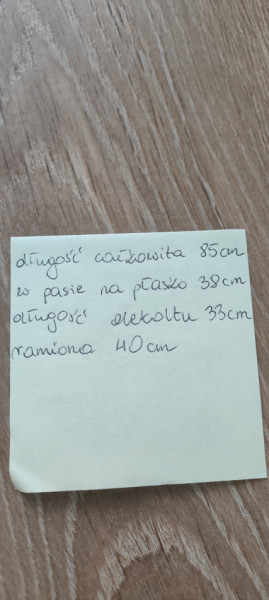 długość całkowita 85cm
w pasie na płasko 38cm
długość dekoltu 33cm
ramiona 40cm